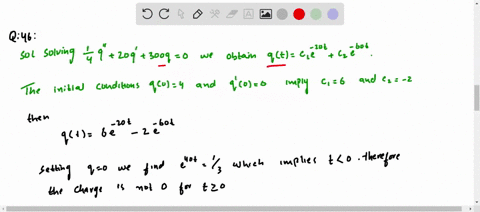 Q:46:
Sol solving 1/4 q'' + 20q' + 300q = 0 we obtain q(t) = c₁e^-20t + c₂e^-60t.
The initial conditions q(0)=4 and q'(0)=0 imply c₁=6 and c₂=-2
then
q(t) = 6e^-20t - 2e^-60t
Setting q=0 we find e^40t = 1/3 which implies t<0. Therefore
the charge is not 0 for t≥0